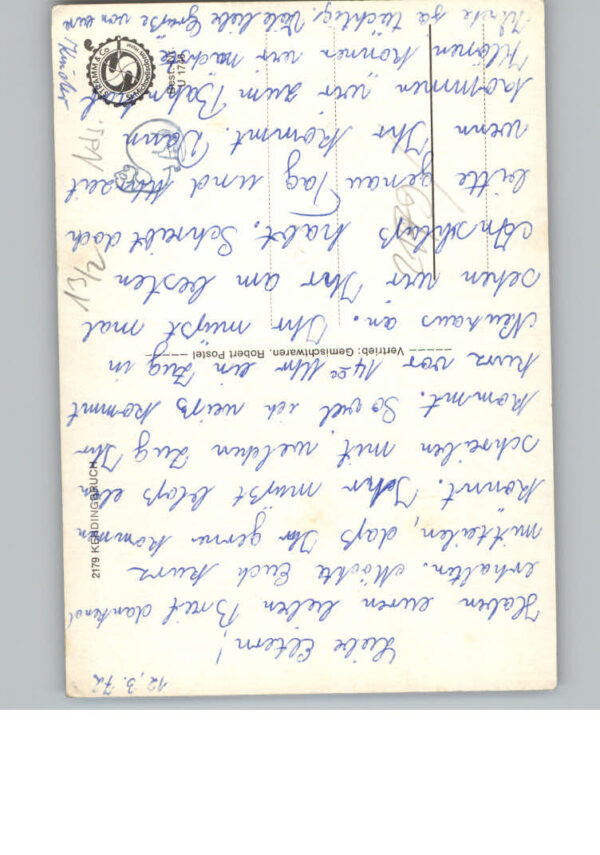 12.3.72
Liebe Eltern!
Haben euren lieben Brief dankend
erhalten. Möchte Euch kurz
mitteilen, daß Ihr gerne kommen
könnt. Ihr müßt bloß eben
schreiben mit welchen Zug Ihr
kommt. Soviel ich weiß kommt
kurz vor 14 00 Uhr ein Zug in
Neuhaus an. Ihr müßt mal
sehen wir Ihr am besten
Anschluß habt. Schreibt doch
bitte genau Tag und Uhrzeit
wenn Ihr kommt. Dann
kommen wir zum Bahnhof
Klönen können wir nachher
ja tüchtig. Viele liebe Grüße von eure
Kinder
2179 KEHDINGBRUCH
Vertrieb: Gemischtwaren, Robert Postel
STRAMM & CO